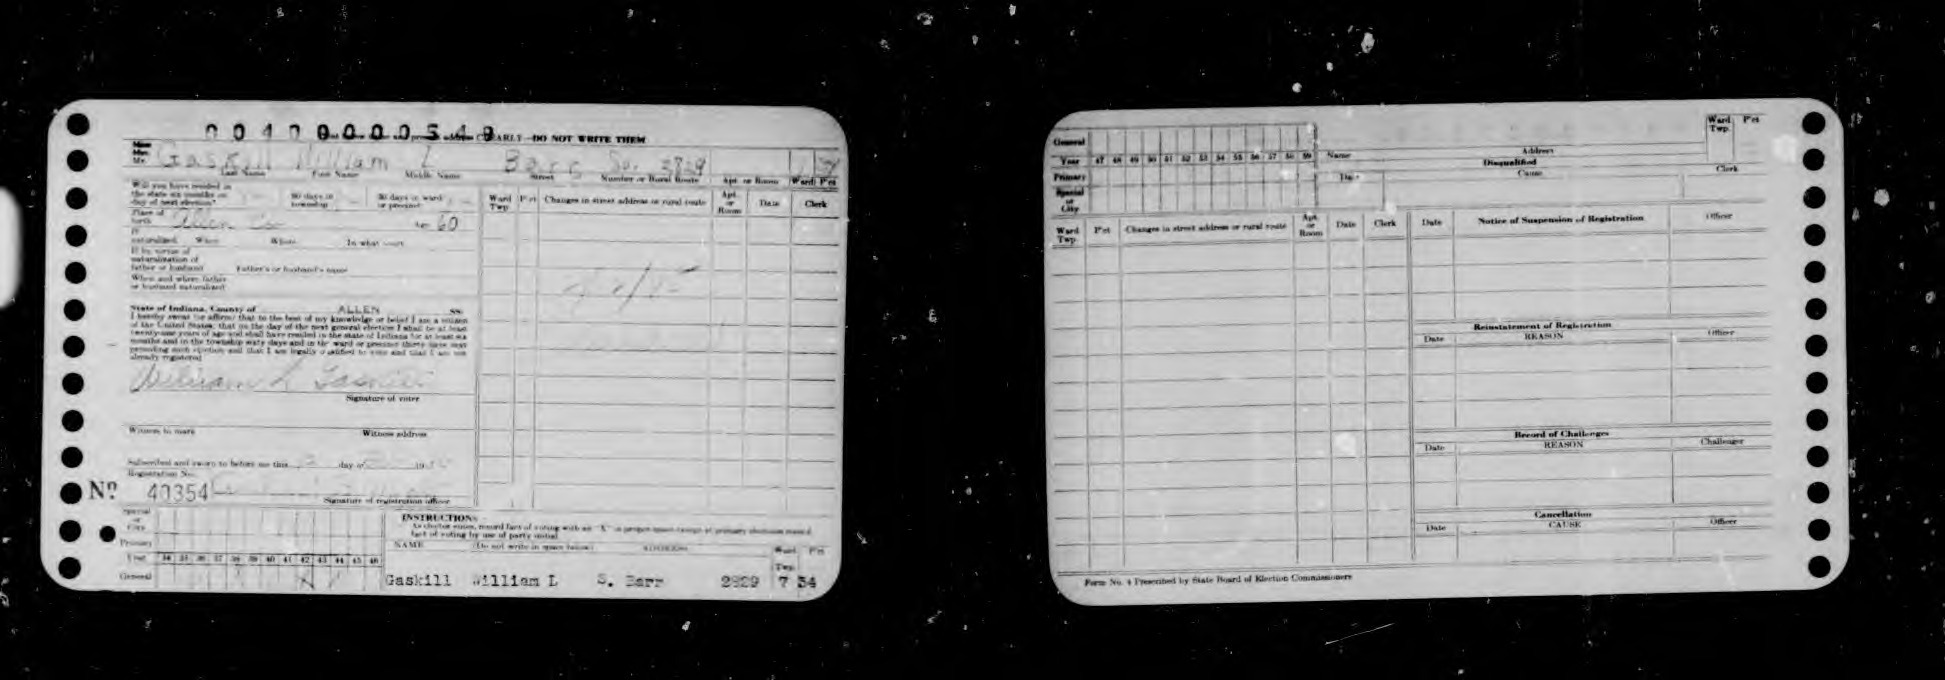 00400000549
EARLY—DO NOT WRITE THEM
Gaskill William L Barr So.
Last Name First Name Middle Name Street Number or Rural Route Apt. or Room Ward P'ct
Will you have resided in
the state six months on 60 days in 30 days in ward
day of next election? township or precinct
Place of
birth Allen Co Age 60
If
naturalized When Where In what court
If by virtue of
naturalization of
father or husband Father's or husband's name
When and where father
or husband naturalized
State of Indiana, County of ALLEN SS:
I hereby swear (or affirm) that to the best of my knowledge or belief I am a citizen
of the United States; that on the day of the next general election I shall be at least
twenty-one years of age and shall have resided in the state of Indiana for at least six
months and in the township sixty days and in the ward or precinct thirty days next
preceding such election and that I am legally qualified to vote and that I am not
already registered
William L Gaskill
Signature of voter
Witness to mark Witness address
Subscribed and sworn to before me this day of 19
Registration No.
No 40354
Signature of registration officer
Ward Twp. P'ct Changes in street address or rural route Apt. or Room Date Clerk
Special
or
City
Primary
Year 34 35 36 37 38 39 40 41 42 43 44 45 46
General
INSTRUCTIONS
As elector votes, record fact of voting with an "X" in proper space except at primary elections record
fact of voting by use of party initial
NAME (Do not write in space below) ADDRESS Ward Twp. P'ct
Gaskill William L S. Barr 2929 7 34
General
Year 47 48 49 50 51 52 53 54 55 56 57 58 59
Primary
Special
or
City
Name Address Ward Twp. P'ct
Disqualified
Date Cause Clerk
Ward Twp. P'ct Changes in street address or rural route Apt. or Room Date Clerk
Date Notice of Suspension of Registration Officer
Reinstatement of Registration
Date REASON Officer
Record of Challenges
Date REASON Challenger
Cancellation
Date CAUSE Officer
Form No. 4 Prescribed by State Board of Election Commissioners